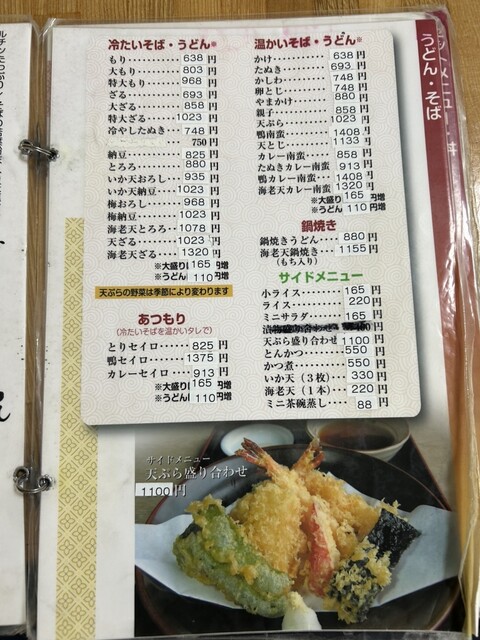 冷たいそば・うどん※
もり・・・・・・・・・638円
大もり・・・・・・・・803円
特大もり・・・・・・968円
ざる・・・・・・・・・693円
大ざる・・・・・・・・858円
特大ざる・・・・・・1023円
冷やしたぬき・・・748円
750円
納豆・・・・・・・・・825円
とろろ・・・・・・・・880円
いか天おろし・・・935円
いか天納豆・・・・1023円
梅おろし・・・・・・968円
梅納豆・・・・・・・1023円
海老天とろろ・・・1078円
天ざる・・・・・・・1023円
海老天ざる・・・・1320円
※大盛り165円増
※うどん110円増
天ぷらの野菜は季節により変わります
あつもり
(冷たいそばを温かいタレで)
とりセイロ・・・・825円
鴨セイロ・・・・・1375円
カレーセイロ・・・913円
※大盛り165円増
※うどん110円増
温かいそば・うどん※
かけ・・・・・・・・・638円
たぬき・・・・・・・・693円
かしわ・・・・・・・・748円
卵とじ・・・・・・・・748円
やまかけ・・・・・・880円
親子・・・・・・・・・858円
天ぷら・・・・・・・1023円
鴨南蛮・・・・・・・1408円
天とじ・・・・・・・1133円
カレー南蛮・・・・858円
たぬきカレー南蛮・・913円
鴨カレー南蛮・・・1408円
海老天カレー南蛮・・1320円
※大盛り165円増
※うどん110円増
鍋焼き
鍋焼きうどん・・・・880円
海老天鍋焼き・・・1155円
(もち入り)
サイドメニュー
小ライス・・・・・・165円
ライス・・・・・・・・220円
ミニサラダ・・・・165円
天ぷら盛り合わせ1100円
とんかつ・・・・・・550円
かつ煮・・・・・・・・550円
いか天(3枚)・・・330円
海老天(1本)・・・220円
ミニ茶碗蒸し・・・88円
うどん・そば
サイドメニュー
天ぷら盛り合わせ
1100円